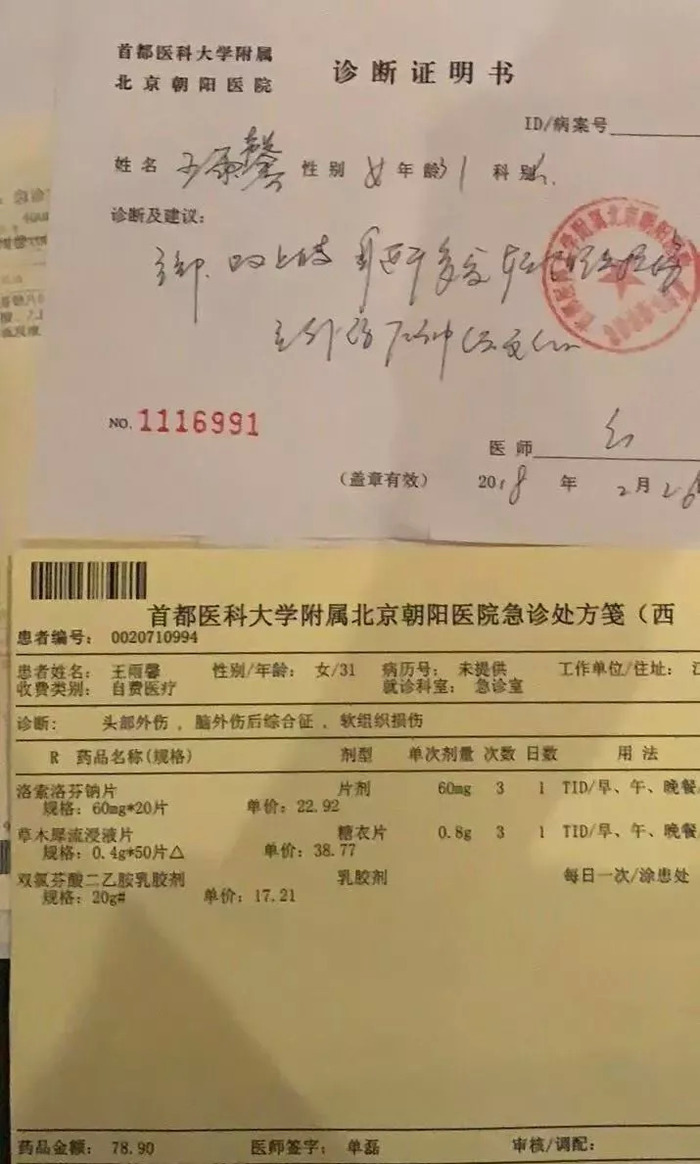 首都医科大学附属
北京朝阳医院
诊断证明书
ID/病案号
姓名 王雨馨 性别 女 年龄 31 科别
诊断及建议:
头部.双上肢
NO. 1116991
医师
(盖章有效) 2018 年 2月 26
首都医科大学附属北京朝阳医院急诊处方笺（西
患者编号: 0020710994
患者姓名: 王雨馨 性别/年龄: 女/31 病历号: 未提供 工作单位/住址: 江
收费类别: 自费医疗 就诊科室: 急诊室
诊断: 头部外伤 , 脑外伤后综合征 , 软组织损伤
R 药品名称(规格) 剂型 单次剂量 次数 日数 用法
洛索洛芬钠片 片剂 60mg 3 1 TID/早、午、晚餐
规格: 60mg*20片 单价: 22.92
草木犀流浸液片 糖衣片 0.8g 3 1 TID/早、午、晚餐
规格: 0.4g*50片△ 单价: 38.77
双氯芬酸二乙胺乳胶剂 乳胶剂 每日一次/涂患处
规格: 20g# 单价: 17.21
药品金额: 78.90 医师签字: 单磊 审核/调配: